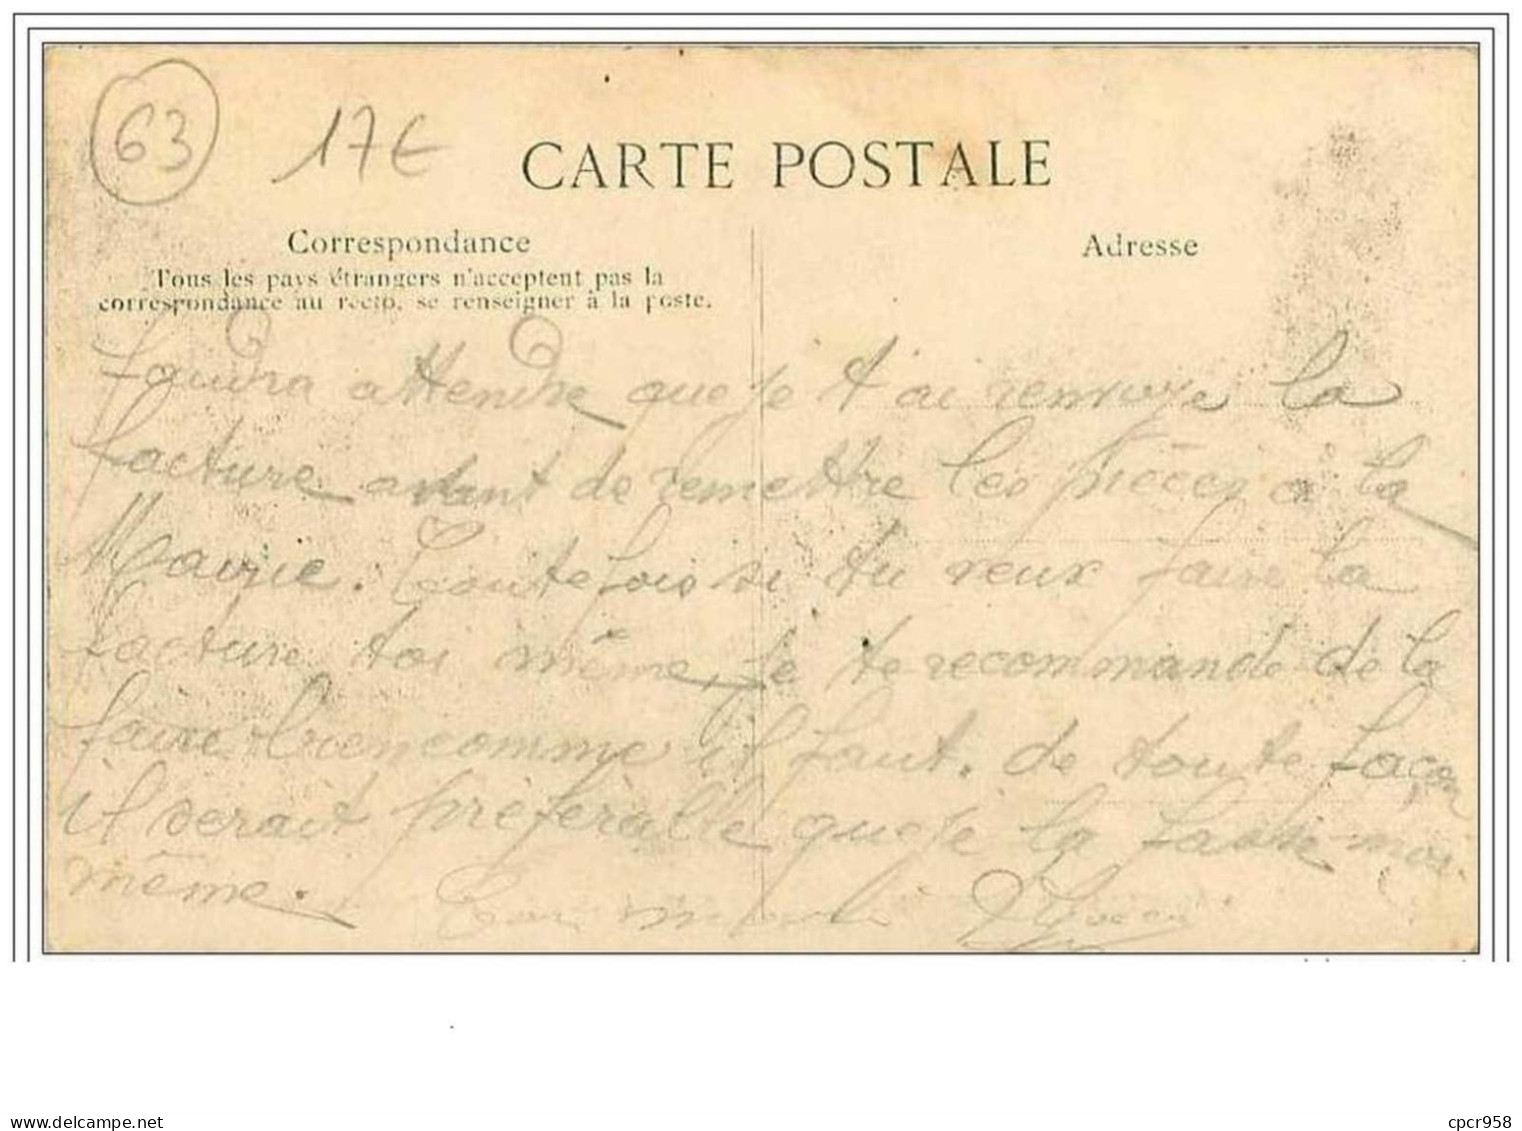 63 17€
CARTE POSTALE
Correspondance
Adresse
Tous les pays étrangers n'acceptent pas la
correspondance au recto, se renseigner à la poste.
faudra attendre que je t'ai renvoye la
facture avant de remettre les pièces à la
Mairie. Toutefois si tu veux faire la
facture toi même, je te recommande de la
faire bien comme il faut. de toute façon
il serait préférable que je la fasse moi
même.
delcampe.net
cpcr958